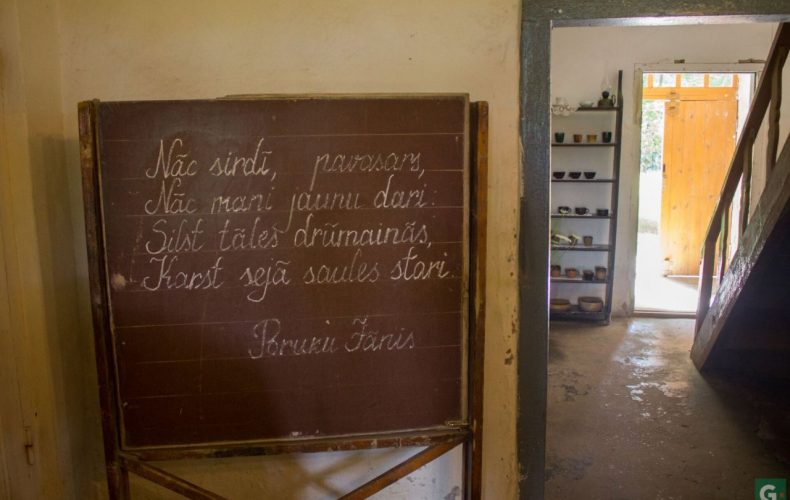 Nāc sirdī, pavasars,
Nāc mani jaunu dari:
Silst tāles drūmainās,
Karst sejā saules stari.
Poruku Jānis
G